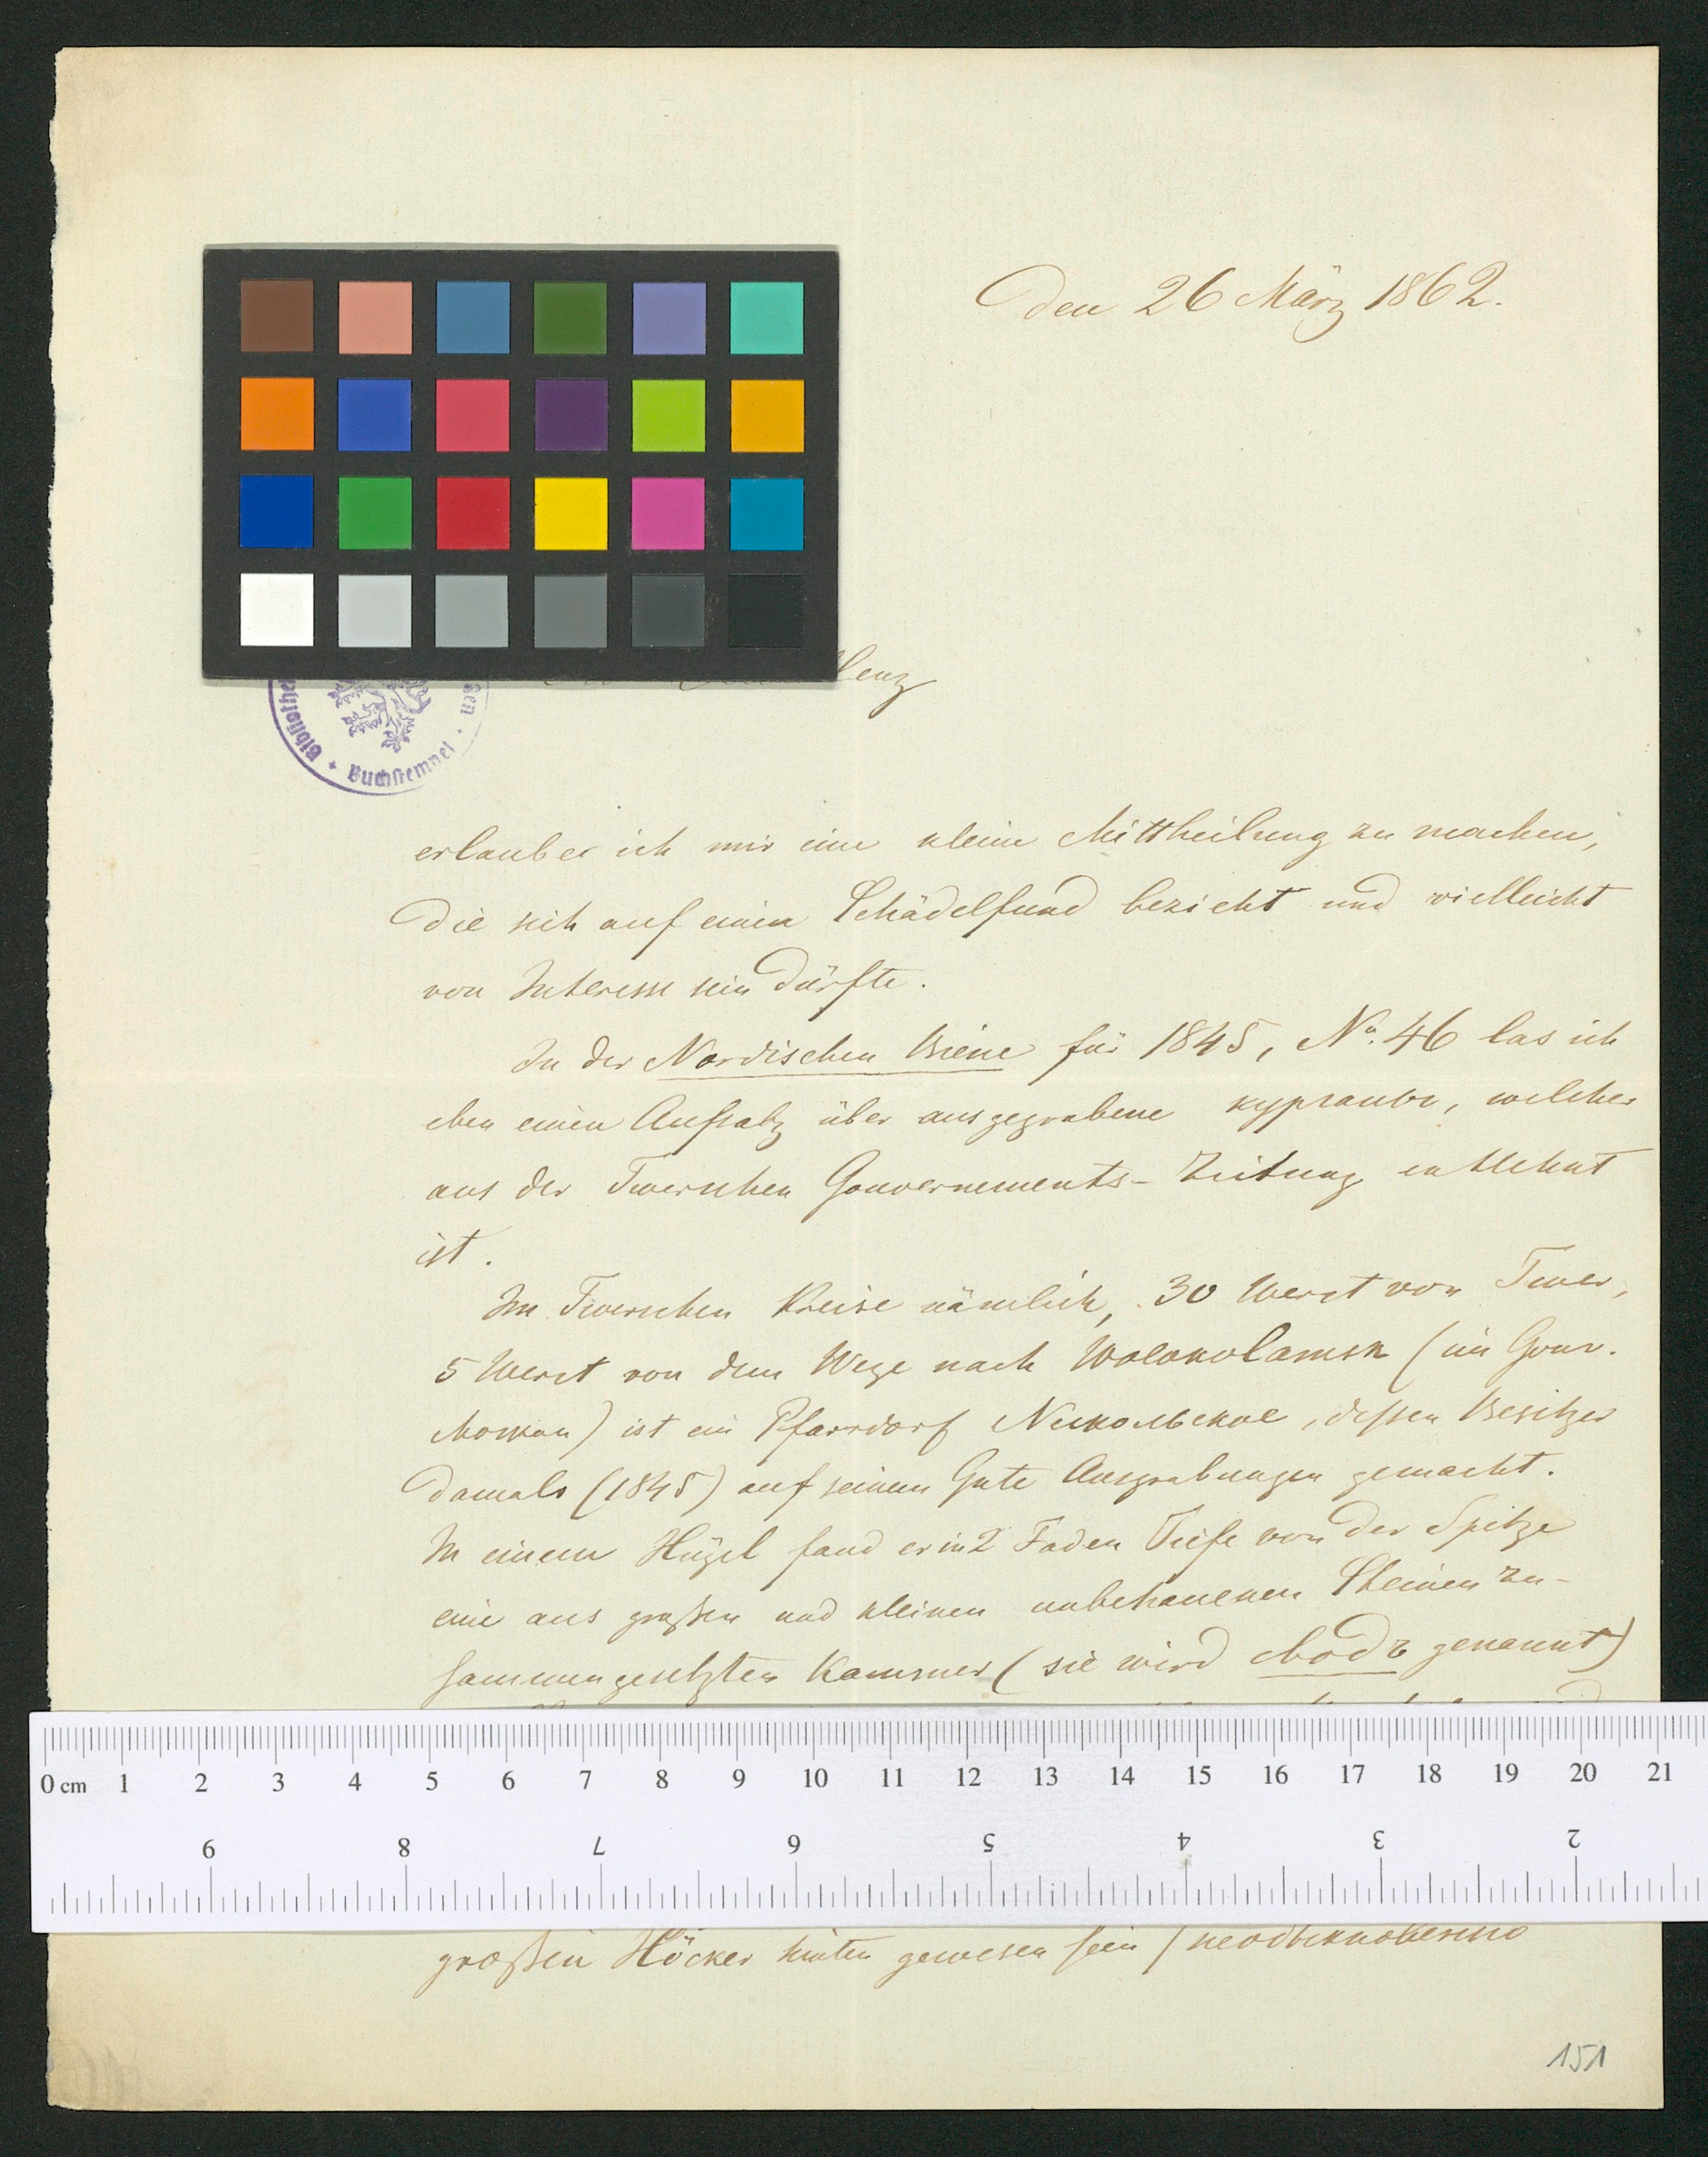 Den 26 März 1862.
erlaube ich mir eine kleine Mittheilung zu machen,
die sich auf einen Schädelfund bezieht und vielleicht
von Interesse sein dürfte.
In der Nordischen Biene für 1845, No. 46 las ich
eben einen Aufsatz über ausgegrabene курганы, welcher
aus der Twerschen Gouvernements-Zeitung entlehnt
ist.
Im Twerschen Kreise nämlich, 30 Werst von Twer,
5 Werst von dem Wege nach Wolokolamsk (im Gouv.
Moskau) ist ein Pfarrdorf, dessen Besitzer
damals (1845) auf seinem Gute Ausgrabungen gemacht.
In einem Hügel fand er in 2 Faden Tiefe von der Spitze
eine aus großen und kleinen unbehauenen Steinen zu-
sammengesetzten Kammer (sie wird genannt)
0 cm 1 2 3 4 5 6 7 8 9 10 11 12 13 14 15 16 17 18 19 20 21
9 8 7 6 5 4 3 2
großen Höcker hinten gewesen sein (необыкновенно
151
Buchstempel